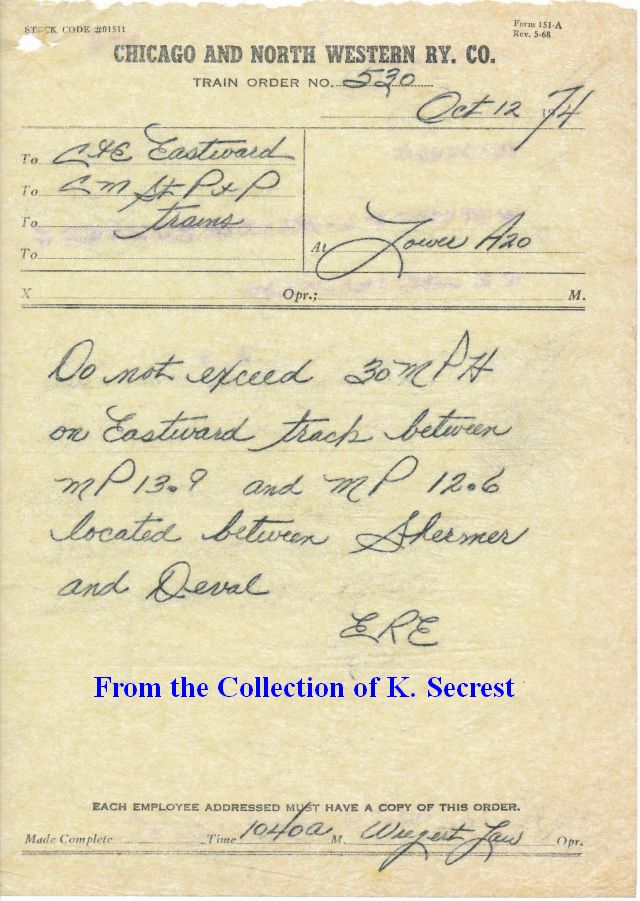 STOCK CODE #01511
Form 151-A
Rev. 5-68
CHICAGO AND NORTH WESTERN RY. CO.
TRAIN ORDER NO. 530
Oct 12 1974
To C&E Eastward
To CM St P & P
To Trains
To
At Tower A20
X Opr.; M.
Do not exceed 30 MPH
on Eastward track between
MP 13.9 and MP 12.6
located between Shermer
and Deval
ERE
From the Collection of K. Secrest
EACH EMPLOYEE ADDRESSED MUST HAVE A COPY OF THIS ORDER.
Made Complete Time 1040a M. Wiegert Opr.